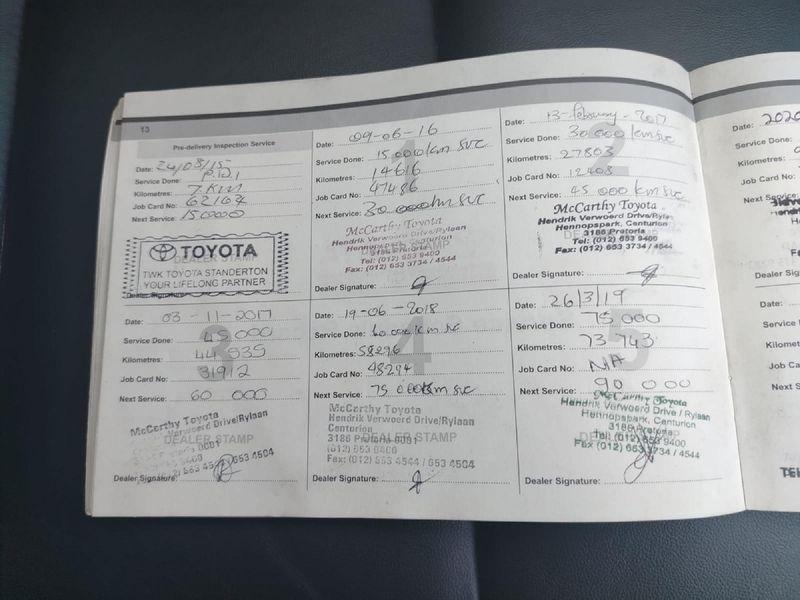 13
Pre-delivery Inspection Service
Date: 24/08/15
Service Done: P.D.I
Kilometres: 7 KM
Job Card No: 62164
Next Service: 15 0000
TOYOTA
TWK TOYOTA STANDERTON
YOUR LIFELONG PARTNER
DEALER STAMP
Dealer Signature:
1
Date: 09-06-16
Service Done: 15 000/km SVC
Kilometres: 14616
Job Card No: 47486
Next Service: 30 000km SVC
McCarthy Toyota
Hendrik Verwoerd Drive/Rylaan
Hennopspark, Centurion
3186 Pretoria
Tel: (012) 653 9400
Fax: (012) 653 3734 / 4544
DEALER STAMP
Dealer Signature:
2
Date: 13-February-2017
Service Done: 30 000 km SVC
Kilometres: 27803
Job Card No: 12408
Next Service: 45 000 km SVC
McCarthy Toyota
Hendrik Verwoerd Drive/Rylaan
Hennopspark, Centurion
3186 Pretoria
Tel: (012) 653 9400
Fax: (012) 653 3734 / 4544
Dealer Signature:
3
Date: 03-11-2017
Service Done: 45 000
Kilometres: 44 935
Job Card No: 31912
Next Service: 60 000
McCarthy Toyota
Verwoerd Drive/Rylaan
DEALER STAMP
653 4504
Dealer Signature:
4
Date: 19-06-2018
Service Done: 60 000/km SVC
Kilometres: 58296
Job Card No: 48294
Next Service: 75 000km SVC
McCarthy Toyota
Hendrik Verwoerd Drive/Rylaan
Centurion
3186 Pretoria 0001
DEALER STAMP
(012) 653 9400
Fax: (012) 653 4544 / 653 4504
Dealer Signature:
5
Date: 26/3/19
Service Done: 75 000
Kilometres: 73 743
Job Card No: N/A
Next Service: 90 000
McCarthy Toyota
Hendrik Verwoerd Drive / Rylaan
Hennopspark, Centurion
3186 Pretoria
Tel: (012) 653 9400
Fax (012) 653 3734 / 4544
Dealer Signature:
Date: 2020
Service Done:
Kilometres:
Job Card No:
Next Service:
Dealer Signature:
Date:
Service Done:
Kilometres:
Job Card No:
Next Service: